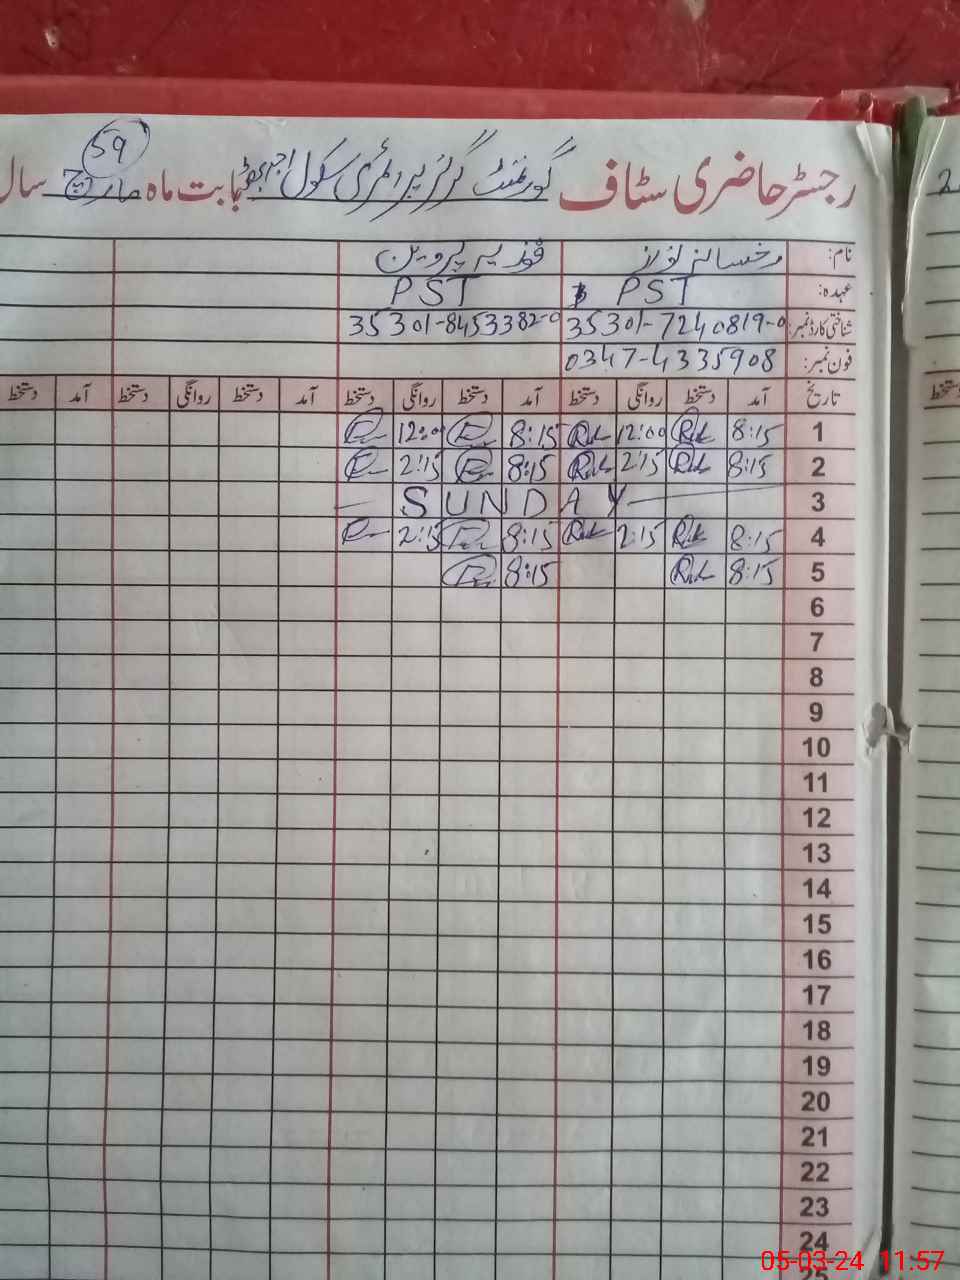 59
رجسٹر حاضری سٹاف گورنمنٹ گرلز پرائمری سکول بابت ماہ مارچ سال
نام: رخسانہ نواز فوزیہ پروین
عہدہ: PST PST
شناختی کارڈ نمبر: 35301-7240819-0 35301-8453382-0
فون نمبر: 0347-4335908
تاریخ آمد دستخط روانگی دستخط آمد دستخط روانگی دستخط آمد دستخط روانگی دستخط آمد دستخط
1 8:15 12:00 8:15 12:00
2 8:15 2:15 8:15 2:15
3 SUNDAY
4 8:15 2:15 8:15 2:15
5 8:15 8:15
6
7
8
9
10
11
12
13
14
15
16
17
18
19
20
21
22
23
24
25
دستخط
05-03-24 11:57